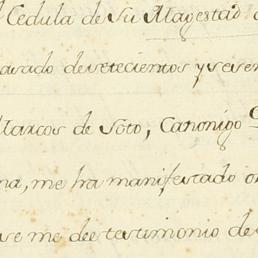 Cedula de Su Magestad
pasado de setecientos y sesen
Marcos de Soto, Canonigo
na, me ha manifestado
se me dee testimonio de